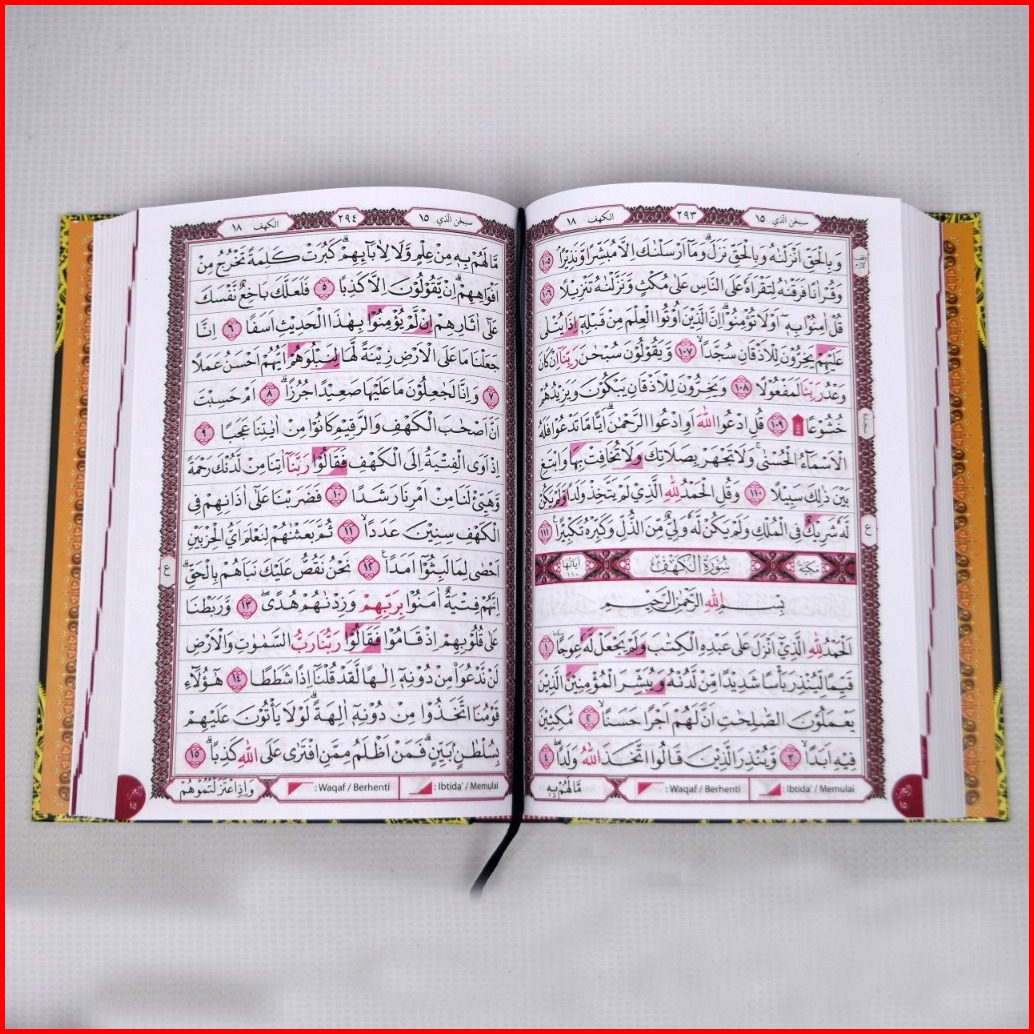 سبحن الذي ١٥
٢٩٣
الكهف ١٨
وَبِالْحَقِّ اَنْزَلْنٰهُ وَبِالْحَقِّ نَزَلَۗ وَمَآ اَرْسَلْنٰكَ اِلَّا مُبَشِّرًا وَّنَذِيْرًاۘ ١٠٥
وَقُرْاٰنًا فَرَقْنٰهُ لِتَقْرَاَهٗ عَلَى النَّاسِ عَلٰى مُكْثٍ وَّنَزَّلْنٰهُ تَنْزِيْلًا ١٠٦
قُلْ اٰمِنُوْا بِهٖٓ اَوْ لَا تُؤْمِنُوْاۗ اِنَّ الَّذِيْنَ اُوْتُوا الْعِلْمَ مِنْ قَبْلِهٖٓ اِذَا يُتْلٰى
عَلَيْهِمْ يَخِرُّوْنَ لِلْاَذْقَانِ سُجَّدًاۙ ١٠٧ وَّيَقُوْلُوْنَ سُبْحٰنَ رَبِّنَآ اِنْ كَانَ
وَعْدُ رَبِّنَا لَمَفْعُوْلًا ١٠٨ وَيَخِرُّوْنَ لِلْاَذْقَانِ يَبْكُوْنَ وَيَزِيْدُهُمْ
خُشُوْعًا ١٠٩ قُلِ ادْعُوا اللّٰهَ اَوِ ادْعُوا الرَّحْمٰنَۗ اَيًّا مَّا تَدْعُوْا فَلَهُ
الْاَسْمَاۤءُ الْحُسْنٰىۚ وَلَا تَجْهَرْ بِصَلَاتِكَ وَلَا تُخَافِتْ بِهَا وَابْتَغِ
بَيْنَ ذٰلِكَ سَبِيْلًا ١١٠ وَقُلِ الْحَمْدُ لِلّٰهِ الَّذِيْ لَمْ يَتَّخِذْ وَلَدًا وَّلَمْ يَكُنْ
لَّهٗ شَرِيْكٌ فِى الْمُلْكِ وَلَمْ يَكُنْ لَّهٗ وَلِيٌّ مِّنَ الذُّلِّ وَكَبِّرْهُ تَكْبِيْرًا ١١١
مَكِّيَّة
سُوْرَةُ الْكَهْفِ
اٰيَاتُهَا ١١٠
بِسْمِ اللّٰهِ الرَّحْمٰنِ الرَّحِيْمِ
اَلْحَمْدُ لِلّٰهِ الَّذِيْٓ اَنْزَلَ عَلٰى عَبْدِهِ الْكِتٰبَ وَلَمْ يَجْعَلْ لَّهٗ عِوَجًاۜ ١
قَيِّمًا لِّيُنْذِرَ بَأْسًا شَدِيْدًا مِّنْ لَّدُنْهُ وَيُبَشِّرَ الْمُؤْمِنِيْنَ الَّذِيْنَ
يَعْمَلُوْنَ الصّٰلِحٰتِ اَنَّ لَهُمْ اَجْرًا حَسَنًاۙ ٢ مَّاكِثِيْنَ
فِيْهِ اَبَدًاۙ ٣ وَّيُنْذِرَ الَّذِيْنَ قَالُوا اتَّخَذَ اللّٰهُ وَلَدًاۖ ٤
مَا لَهُمْ بِهٖ
: Waqaf / Berhenti
: Ibtida' / Memulai
سبحن الذي ١٥
٢٩٤
الكهف ١٨
مَّا لَهُمْ بِهٖ مِنْ عِلْمٍ وَّلَا لِاٰبَاۤىِٕهِمْۗ كَبُرَتْ كَلِمَةً تَخْرُجُ مِنْ
اَفْوَاهِهِمْۗ اِنْ يَّقُوْلُوْنَ اِلَّا كَذِبًا ٥ فَلَعَلَّكَ بَاخِعٌ نَّفْسَكَ
عَلٰٓى اٰثَارِهِمْ اِنْ لَّمْ يُؤْمِنُوْا بِهٰذَا الْحَدِيْثِ اَسَفًا ٦ اِنَّا
جَعَلْنَا مَا عَلَى الْاَرْضِ زِيْنَةً لَّهَا لِنَبْلُوَهُمْ اَيُّهُمْ اَحْسَنُ عَمَلًا
٧ وَاِنَّا لَجٰعِلُوْنَ مَا عَلَيْهَا صَعِيْدًا جُرُزًاۗ ٨ اَمْ حَسِبْتَ
اَنَّ اَصْحٰبَ الْكَهْفِ وَالرَّقِيْمِ كَانُوْا مِنْ اٰيٰتِنَا عَجَبًا ٩
اِذْ اَوَى الْفِتْيَةُ اِلَى الْكَهْفِ فَقَالُوْا رَبَّنَآ اٰتِنَا مِنْ لَّدُنْكَ رَحْمَةً
وَّهَيِّئْ لَنَا مِنْ اَمْرِنَا رَشَدًا ١٠ فَضَرَبْنَا عَلٰٓى اٰذَانِهِمْ فِى
الْكَهْفِ سِنِيْنَ عَدَدًاۙ ١١ ثُمَّ بَعَثْنٰهُمْ لِنَعْلَمَ اَيُّ الْحِزْبَيْنِ
اَحْصٰى لِمَا لَبِثُوْٓا اَمَدًا ١٢ نَحْنُ نَقُصُّ عَلَيْكَ نَبَاَهُمْ بِالْحَقِّۗ
اِنَّهُمْ فِتْيَةٌ اٰمَنُوْا بِرَبِّهِمْ وَزِدْنٰهُمْ هُدًىۖ ١٣ وَّرَبَطْنَا
عَلٰى قُلُوْبِهِمْ اِذْ قَامُوْا فَقَالُوْا رَبُّنَا رَبُّ السَّمٰوٰتِ وَالْاَرْضِ
لَنْ نَّدْعُوَا۟ مِنْ دُوْنِهٖٓ اِلٰهًا لَّقَدْ قُلْنَآ اِذًا شَطَطًا ١٤ هٰٓؤُلَاۤءِ
قَوْمُنَا اتَّخَذُوْا مِنْ دُوْنِهٖٓ اٰلِهَةًۗ لَوْلَا يَأْتُوْنَ عَلَيْهِمْ
بِسُلْطٰنٍۢ بَيِّنٍۗ فَمَنْ اَظْلَمُ مِمَّنِ افْتَرٰى عَلَى اللّٰهِ كَذِبًاۗ ١٥
وَاِذِ اعْتَزَلْتُمُوْهُمْ
: Waqaf / Berhenti
: Ibtida' / Memulai